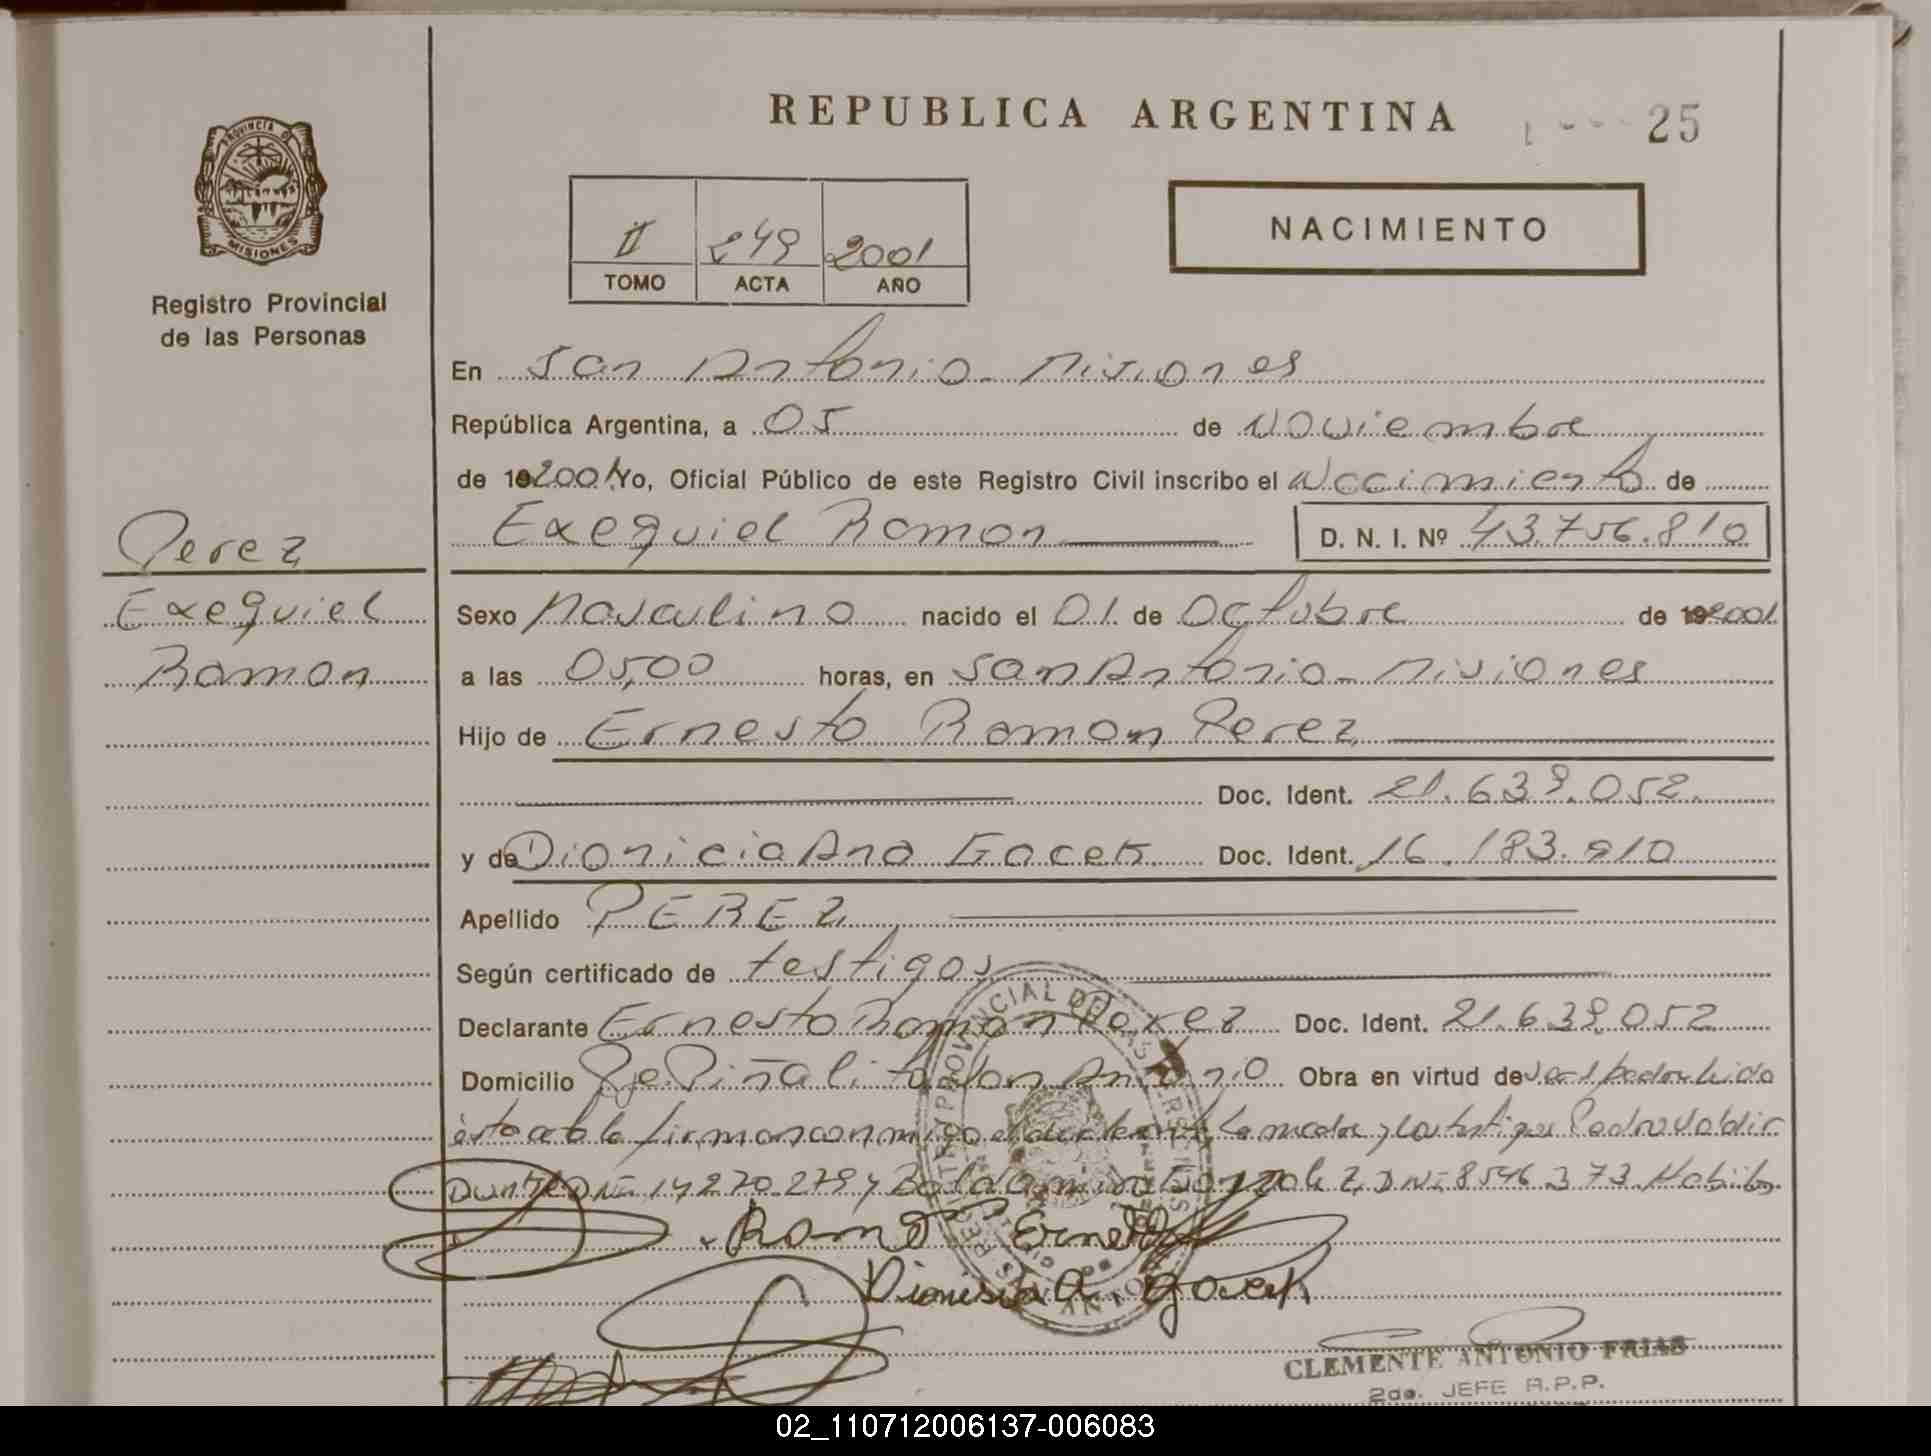 REPUBLICA ARGENTINA
25
PROVINCIA D
MISIONES
Registro Provincial
de las Personas
II 249 2001
TOMO ACTA AÑO
NACIMIENTO
En San Antonio - Misiones
República Argentina, a 05 de Noviembre
de 2001 Yo, Oficial Público de este Registro Civil inscribo el Nacimiento de
Exequiel Ramon D. N. I. Nº 43.756.810
Perez
Exequiel
Ramon
Sexo Masculino nacido el 01 de Octubre de 2001
a las 05,00 horas, en San Antonio - Misiones
Hijo de Ernesto Ramon Perez
Doc. Ident. 21.639.052
y de Dionicia Ana Gacek Doc. Ident. 16.183.910
Apellido PEREZ
Según certificado de testigos
Declarante Ernesto Ramon Perez Doc. Ident. 21.639.052
Domicilio Piñalito San Antonio Obra en virtud de
firman conmigo el declarante, la madre y los testigos Pedro Valdir
DNI- 14270.279 y DNI- 8546373
Ramon Ernesto
Dionisia A Gacek
CLEMENTE ANTONIO FRIAS
2do. JEFE R.P.P.
02_110712006137-006083